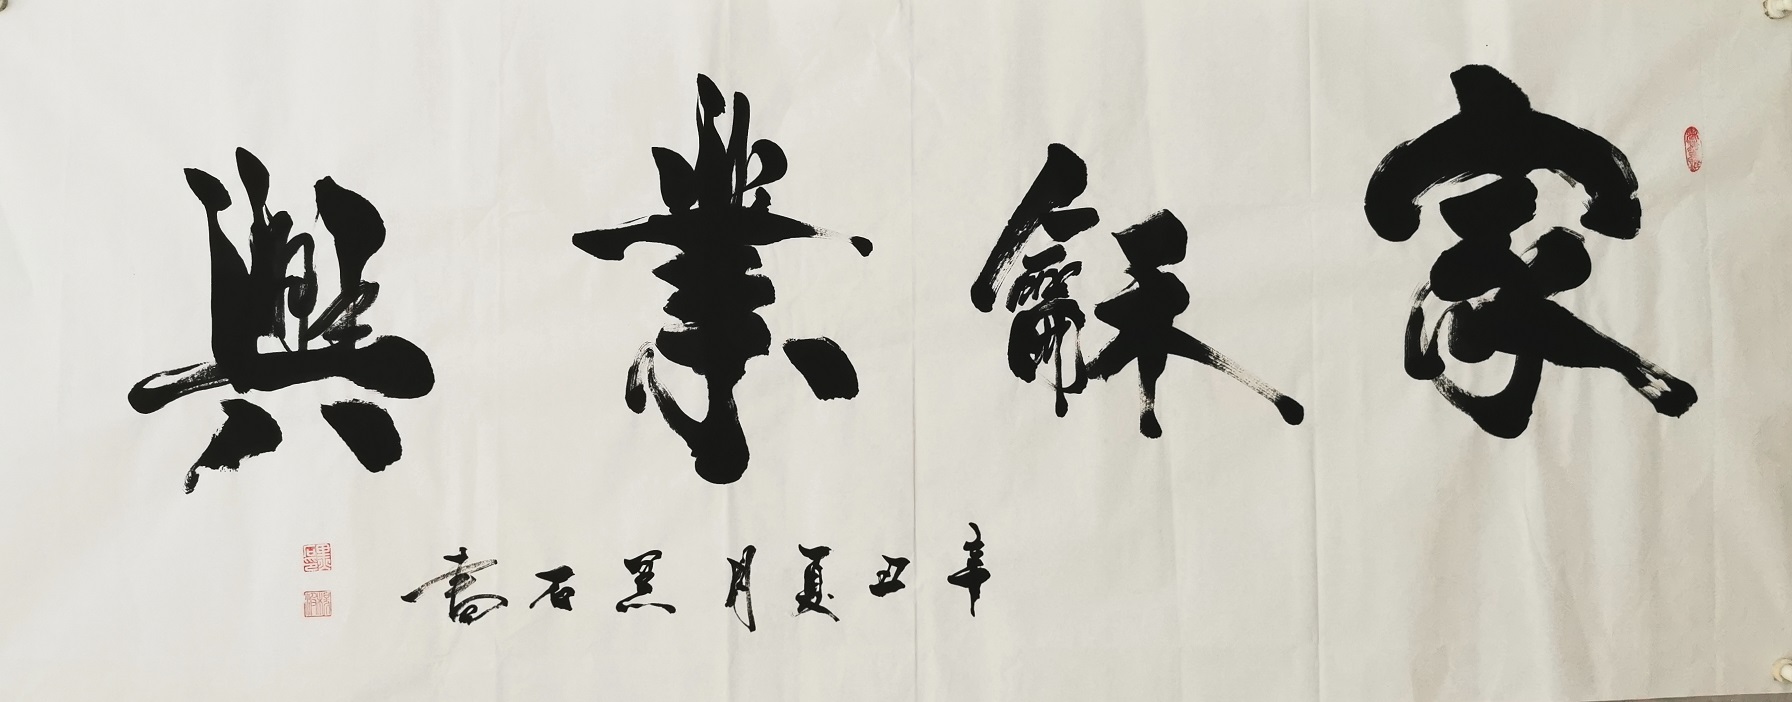 家龢業興
辛丑夏月黑石書